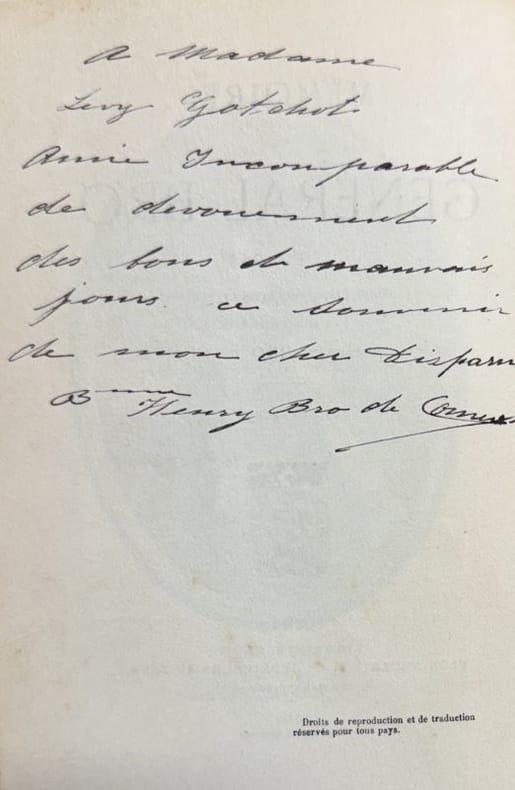 A Madame
Levy Gotchot.
Amie Incomparable
de devouement
des bons et mauvais
jours. ce souvenir
de mon cher Disparu
Bnne Henry Bro de
Droits de reproduction et de traduction
réservés pour tous pays.